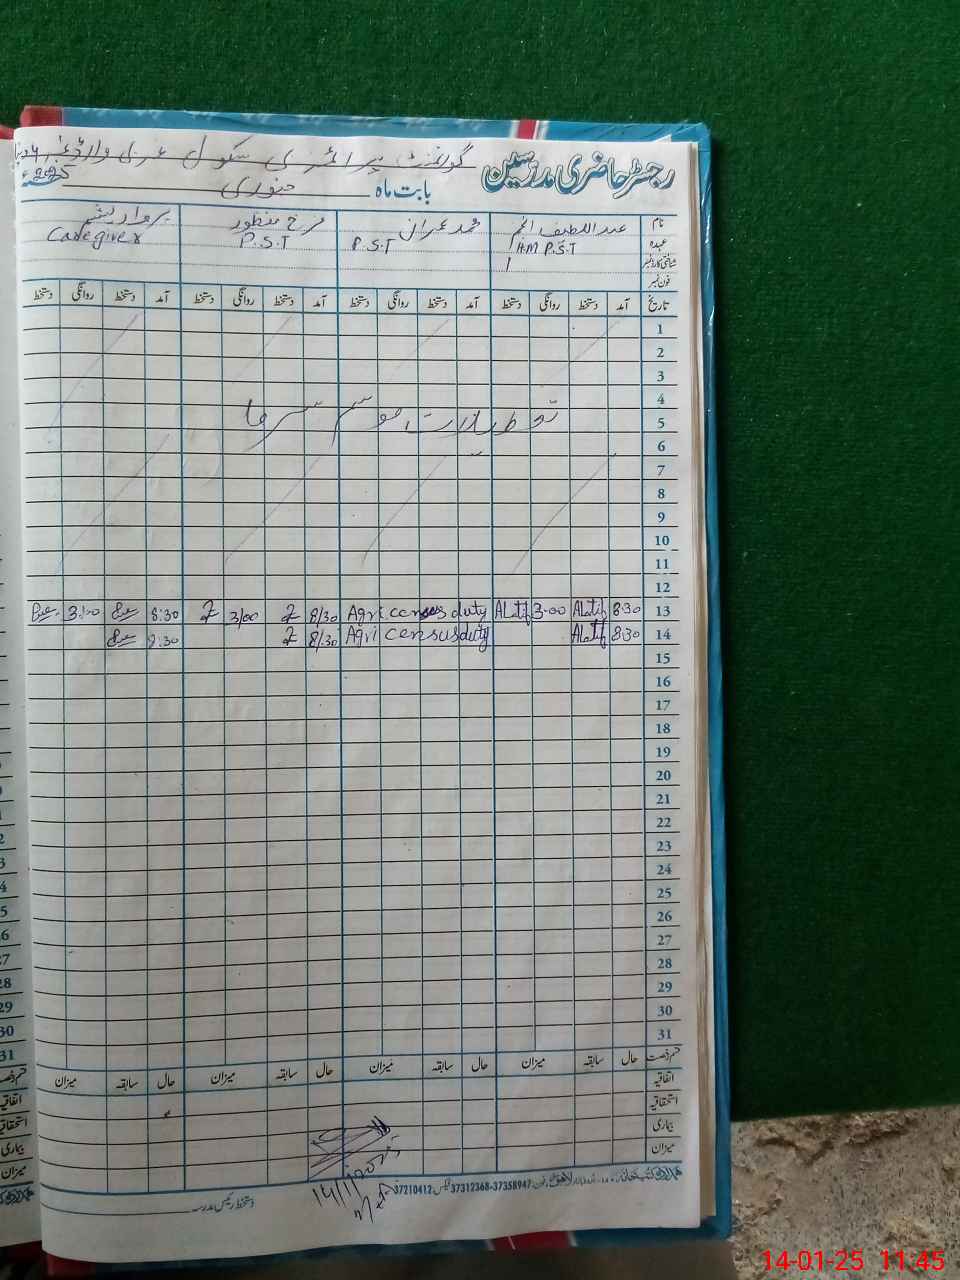 رجسٹر حاضری مدرسین گورنمنٹ پرائمری سکول
بابت ماہ جنوری 2025
نام عبداللطیف انجم محمد عمران فرخ منظور
عہدہ HM P.S.T P.S.T P.S.T Caregiver
شناختی کارڈ نمبر
فون نمبر
تاریخ آمد دستخط روانگی دستخط آمد دستخط روانگی دستخط آمد دستخط روانگی دستخط آمد دستخط روانگی دستخط
1
2
3
4
تعطیلات موسم سرما
5
6
7
8
9
10
11
12
13 8:30 Alatif 3:00 Alatif Agri census duty 8/30 3/00 8:30 3:00
14 8:30 Alatif Agri census duty 8/30 8:30
15
16
17
18
19
20
21
22
23
24
25
26
27
28
29
30
31
قسم رخصت حال سابقہ میزان حال سابقہ میزان حال سابقہ میزان حال سابقہ میزان
اتفاقیہ
استحقاقیہ
بیماری
میزان
14/1/2025
37210412 فیکس 37312368-37358947
دستخط رئیس مدرسہ
14-01-25 11:45